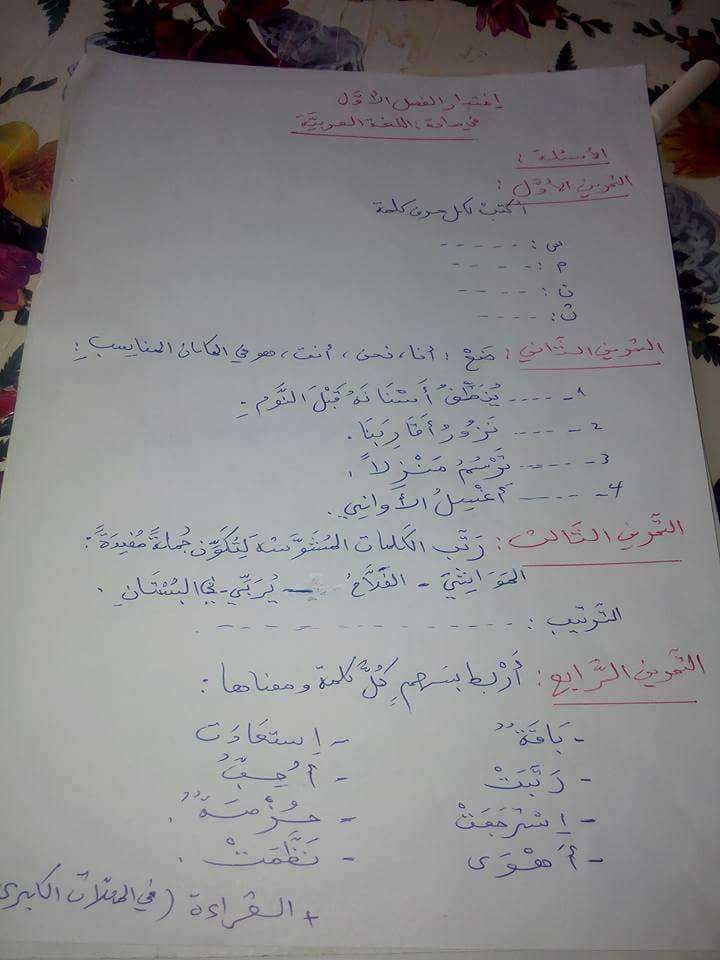 إختبار الفصل الأوّل
في مادة: اللغة العربيّة
الأسئلة:
التمرين الأوّل:
أكتب لكل حرف كلمة
س: -----
م: ----
ن: ----
ث: ----
التمرين الثّاني: ضَعْ: أنا، نحن، أنت، هو في المكان المناسب:
1- .... يُنَظِّفُ أَسْنَانَهُ قَبْلَ النَّوْمِ.
2- .... نَزُورُ أَقَارِبَنَا.
3- .... تَرْسُمُ مَنْزِلاً.
4- .... أَغْسِلُ الأَوَانِي.
التّمرين الثّالث: رَتّب الكلمات المُشَوَّشة لِتُكَوِّن جُملةً مُفِيدَةً:
المَوَاشِيَ - الفَلَّاحُ - يُرَبِّي - في البُسْتَانِ.
التّرتيب: - - - - - - - - - -
التّمرين الرّابع: أَرْبط بسهمٍ كُلَّ كلمة ومعناها:
- بَاقَةٌ - إستعَادَت
- رَتَّبَتْ - أُحِبُّ
- إِسْتَرْجَعَتْ - حُزْمَةٌ.
- أَهْوَى - نَظَّمَتْ.
+ القراءة (في المحلّات الكبرى